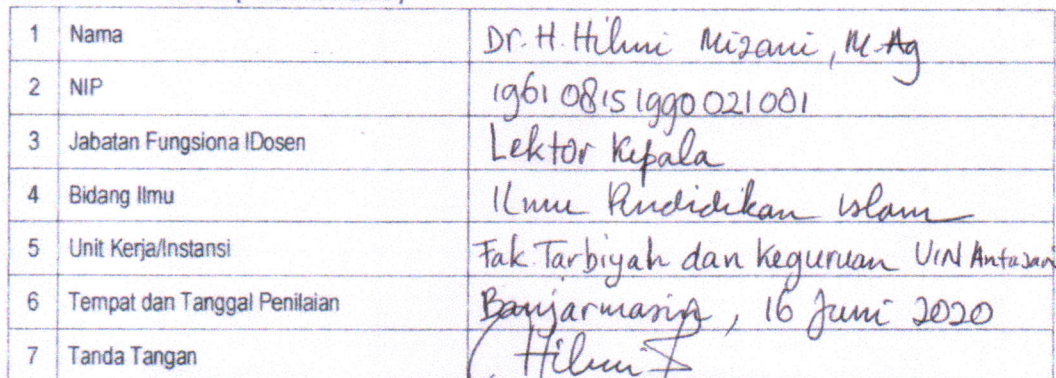 1 Nama Dr. H. Hilmi Mizani, M.Ag
2 NIP 196108151990021001
3 Jabatan Fungsiona lDosen Lektor Kepala
4 Bidang Ilmu Ilmu Pendidikan Islam
5 Unit Kerja/Instansi Fak. Tarbiyah dan Keguruan UIN Antasari
6 Tempat dan Tanggal Penilaian Banjarmasin, 16 Juni 2020
7 Tanda Tangan Hilmi